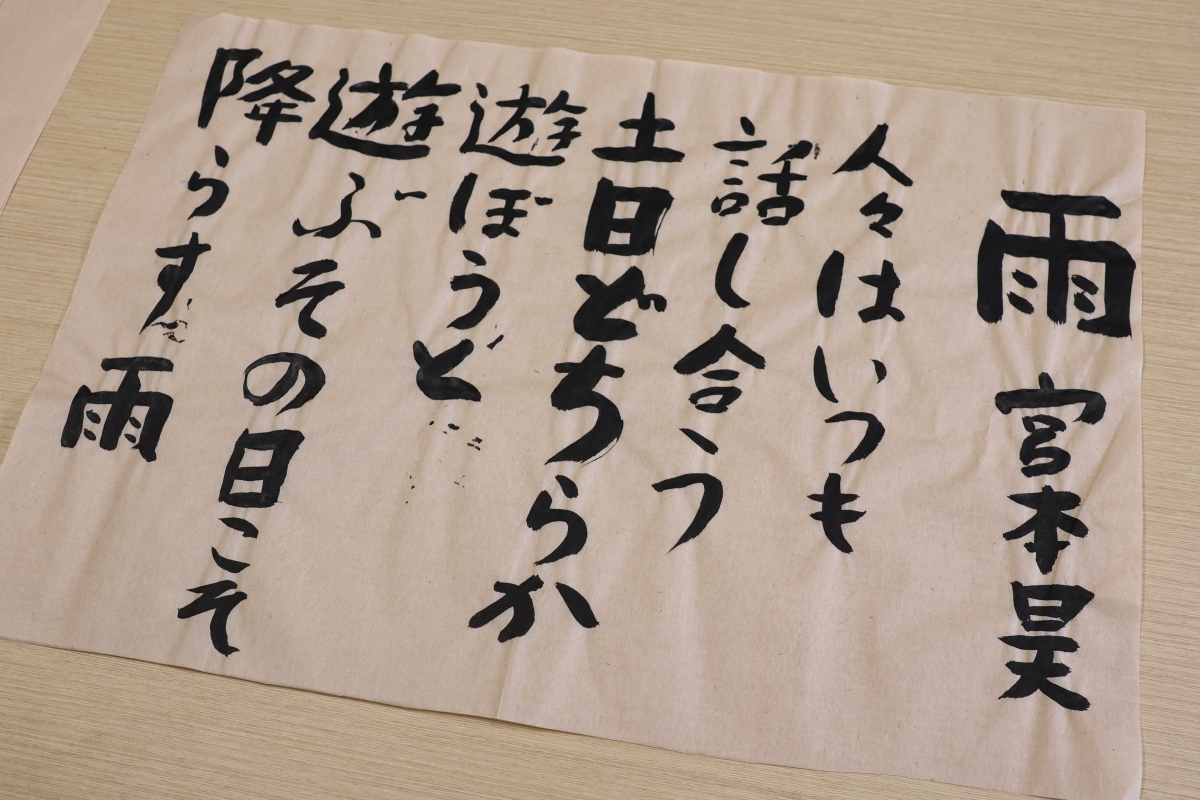 雨 宮本昊
人々はいつも
話し合う
土日どちらか
遊ぼうど
遊ぶその日こそ
降らす雨